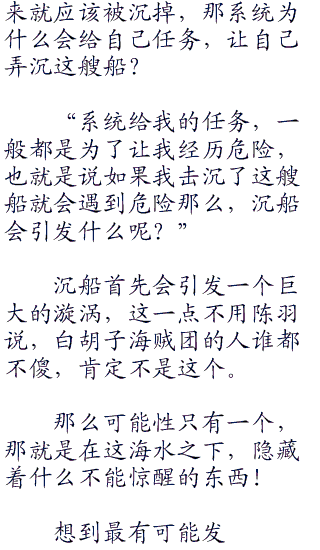 来就应该被沉掉，那系统为
什么会给自己任务，让自己
弄沉这艘船？
“系统给我的任务，一
般都是为了让我经历危险，
也就是说如果我击沉了这艘
船就会遇到危险那么，沉船
会引发什么呢？”
沉船首先会引发一个巨
大的漩涡，这一点不用陈羽
说，白胡子海贼团的人谁都
不傻，肯定不是这个。
那么可能性只有一个，
那就是在这海水之下，隐藏
着什么不能惊醒的东西！
想到最有可能发